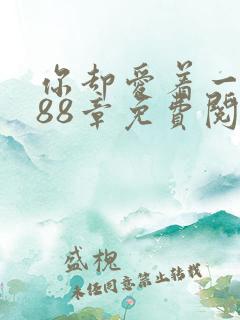 你却爱着一
88章免费阅
盛槐
未经同意禁止转载